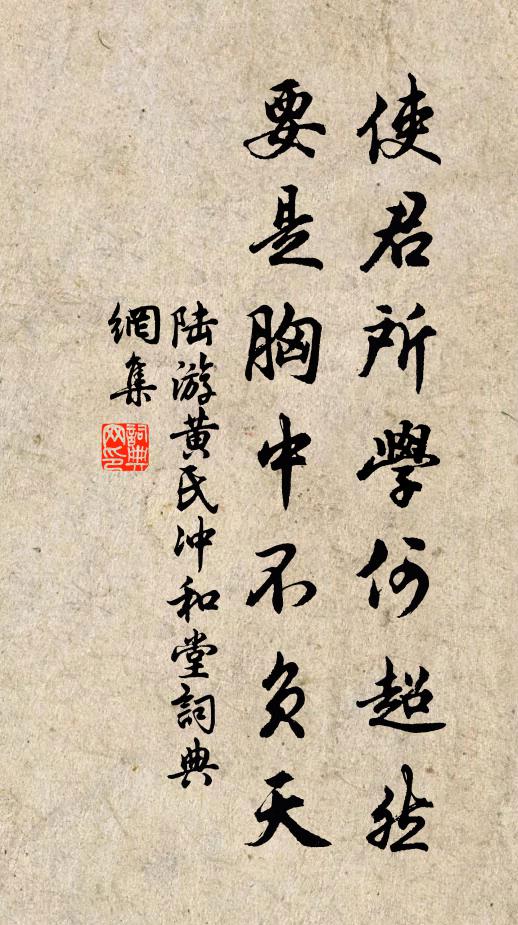 使君所學何超然
要是胸中不負天
陆游黄氏冲和堂詞典
網集
詞典
网印